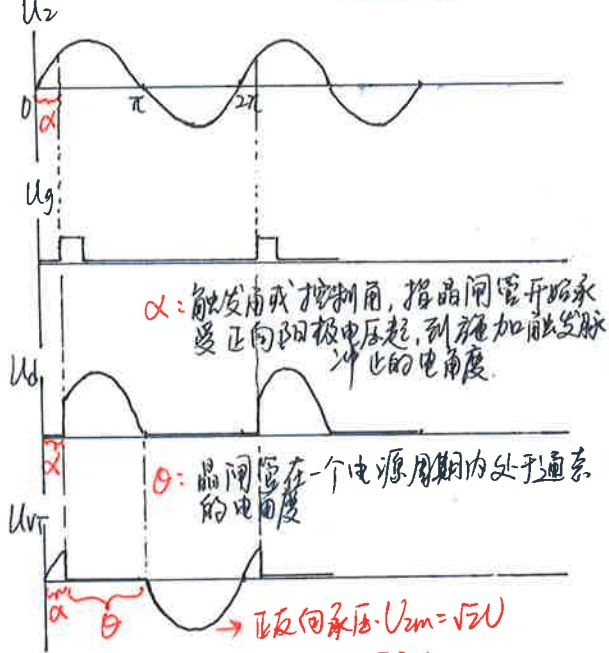 U2
0
α
π
2π
Ug
α：触发角或控制角，指晶闸管开始承
受正向阳极电压起，到施加触发脉
冲止的电角度.
Ud
α
θ：晶闸管在一个电源周期内处于通态
的电角度
UVT
α
θ
→ 正反向承压·U2m=√2U